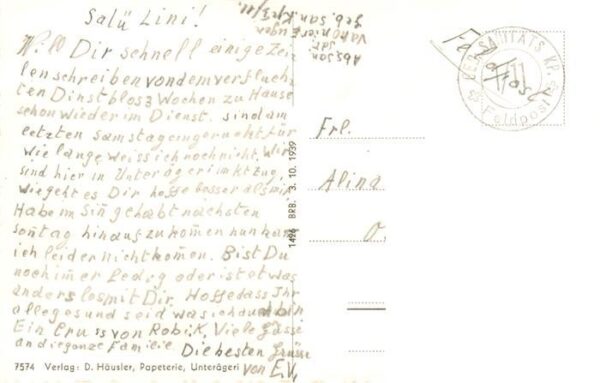 Salü Lini!
Will Dir schnell einige Zei
len schreiben von dem verfluch
ten Dinst blos 3 Wochen zu Hause
schon wieder im Dienst. sind am
letzten Samstag eingeruckt für
wie lange weiss ich noch nicht. Wir
sind hier in Unterägeri im Kt Zug
wie geht es Dir hoffe besser als mir
Habe im Sin gehabt nächsten
sontag hinaus zu komen nun kan
ich leider nicht komen. Bist Du
noch imer Ledig oder ist etwas
anders los mit Dir. Hoffe dass Ihr
alle gesund seid was ich auch bin
Ein Gruss von Robi.K. Viele Grüsse
an die ganze Familie Die besten Grüsse
von E.V.
7574 Verlag: D. Häusler, Papeterie, Unterägeri
1426 BRB. 3. 10. 1939
Abs. San
geb. San. Kp.
Feldpost
SANITÄTS KP.
Feldpost
Frl.
Alina
O.